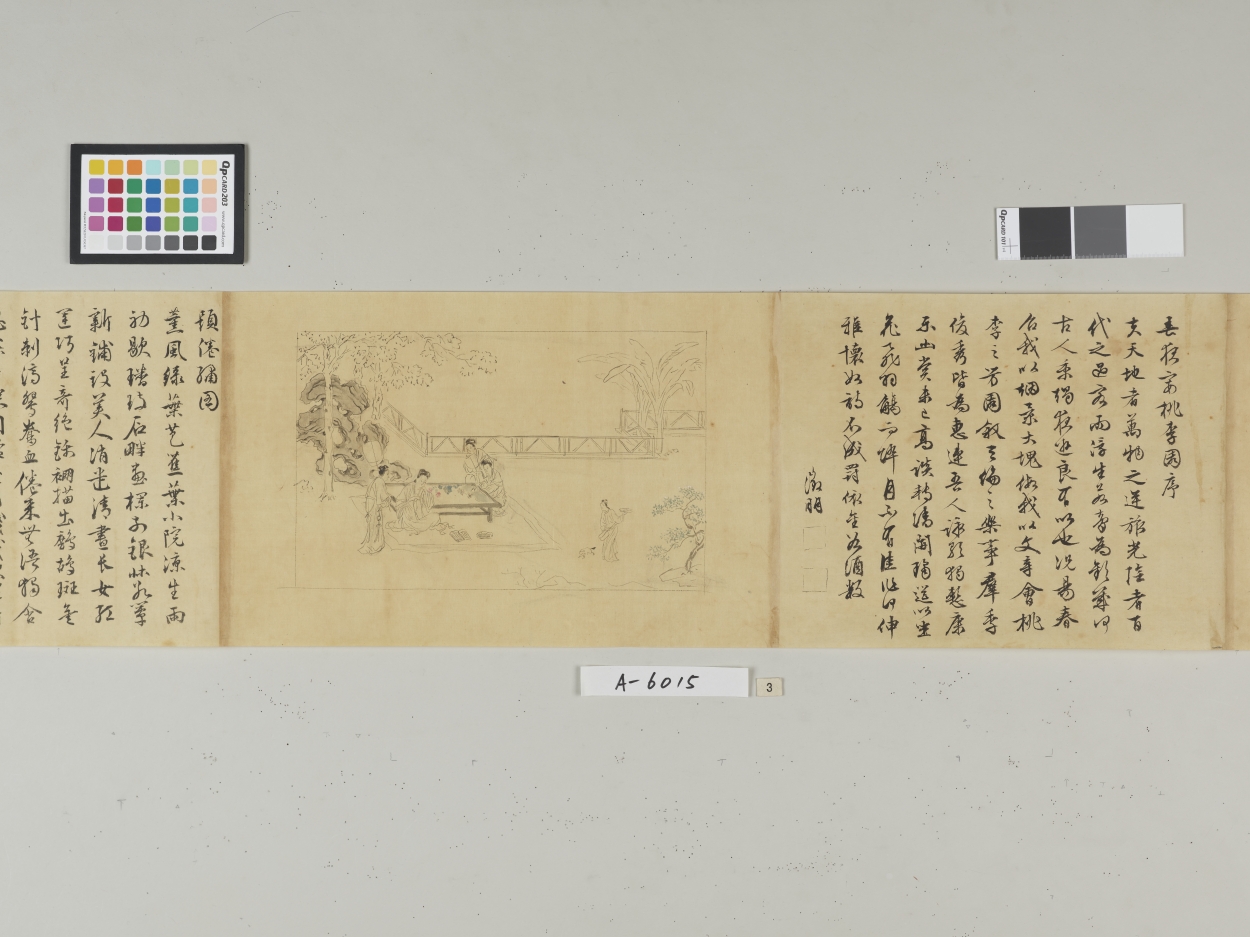 春夜宴桃李園序
夫天地者萬物之逆旅光陰者百
代之過客而浮生若夢為歡幾何
古人秉燭夜遊良有以也況陽春
召我以烟景大塊假我以文章會桃
李之芳園叙天倫之樂事羣季
俊秀皆為惠連吾人詠歌獨慙康
樂幽賞未已高談轉清開瓊筵以坐
花飛羽觴而醉月不有佳作何伸
雅懷如詩不成罰依金谷酒數
徵明
題倦繡圖
薰風綠葉芭蕉葉小院涼生雨
初歇石畔銀牀氷簟
新鋪設美人消遣清晝長女紅
運巧呈奇絕描出鷓鴣斑金
針刺鴛鴦血倦來無語獨含
A-6015
3
QPCARD 203
QPCARD 101